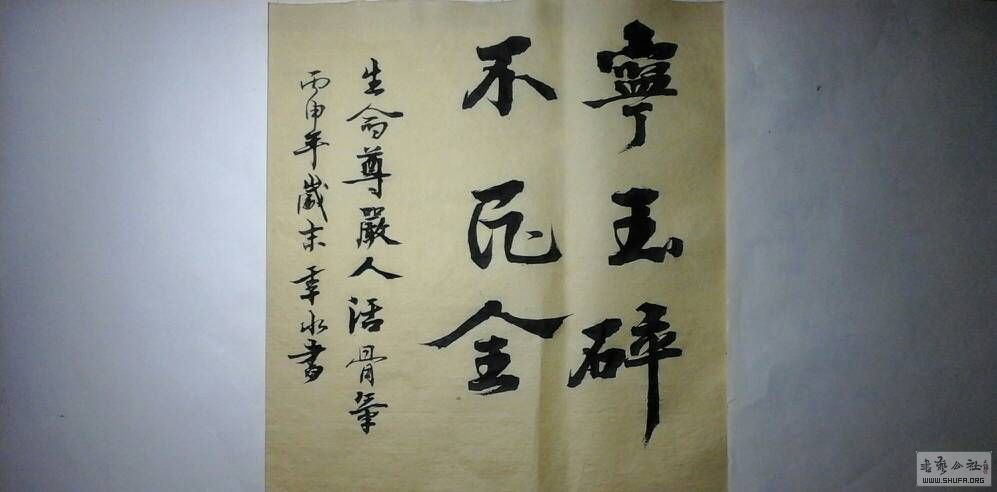 寧玉碎
不瓦全
生命尊嚴人活骨氣
丙申年歲末 水書
書藝公社
WWW.SHUFA.ORG